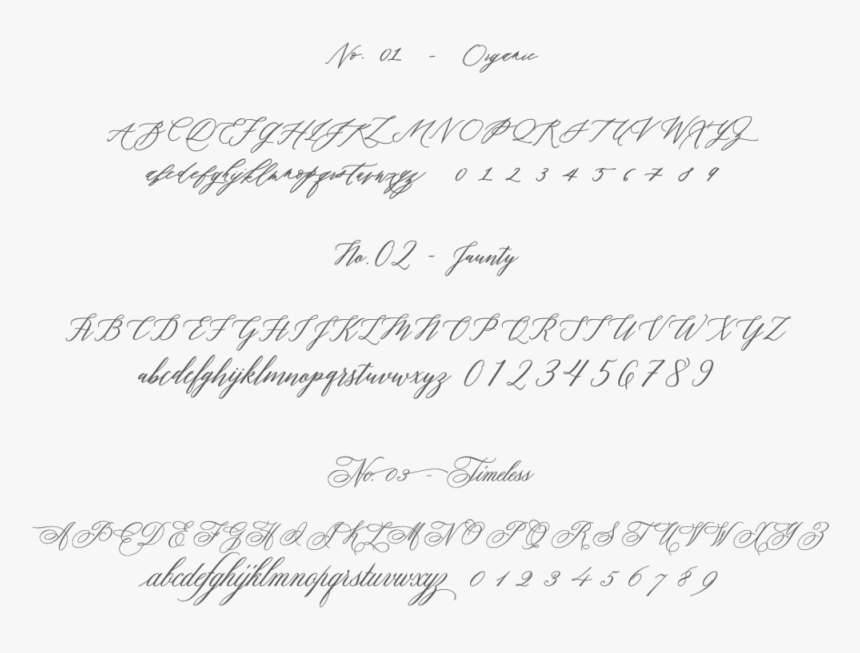 No. 01 - Organic
ABCDEFGHIJKLMNOPQRSTUVWXYZ
abcdefghijklmnopqrstuvwxyz 0 1 2 3 4 5 6 7 8 9
No. 02 - Jaunty
ABCDEFGHIJKLMNOPQRSTUVWXYZ
abcdefghijklmnopqrstuvwxyz 0 1 2 3 4 5 6 7 8 9
No. 03 - Timeless
ABCDEFGHIJKLMNOPQRSTUVWXYZ
abcdefghijklmnopqrstuvwxyz 0 1 2 3 4 5 6 7 8 9